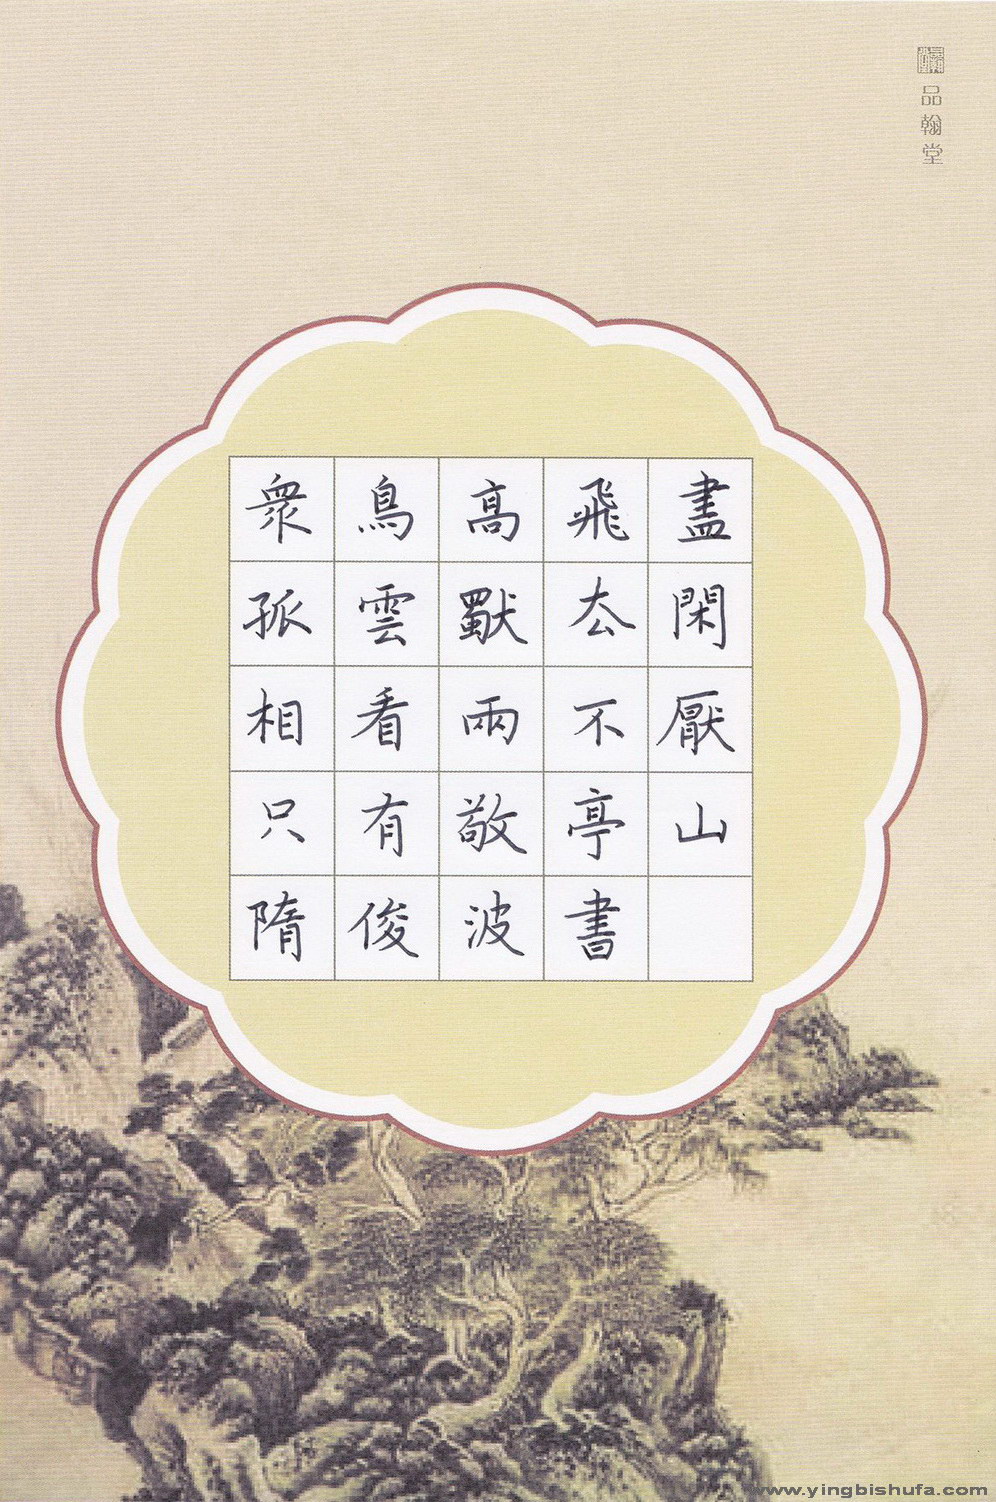 品翰堂
衆鳥高飛盡
孤雲獨厺閑
相看兩不厭
只有敬亭山
隋俊波書
www.yingbishufa.com